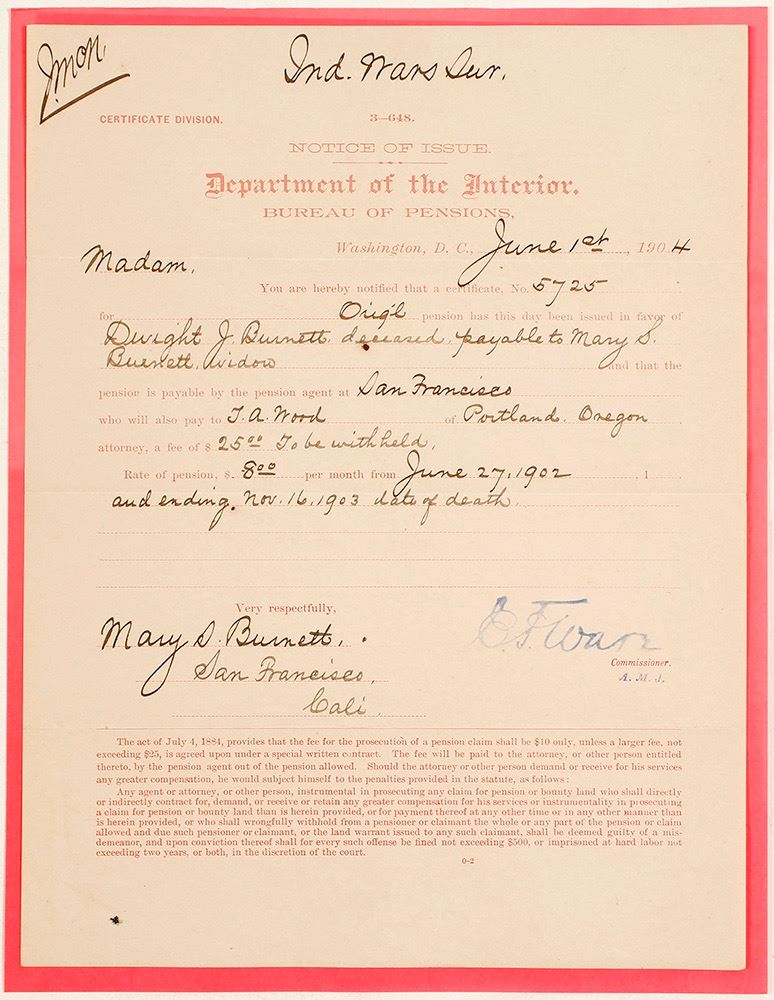 Ind. Wars Sur.
CERTIFICATE DIVISION.
3—648.
NOTICE OF ISSUE.
Department of the Interior.
BUREAU OF PENSIONS,
Washington, D. C., June 1st, 1904
Madam,
You are hereby notified that a certificate, No. 5725
for Orig'l pension has this day been issued in favor of
Dwight J. Burnett, deceased, payable to Mary S.
Burnett, widow and that the
pension is payable by the pension agent at San Francisco
who will also pay to T. A. Wood of Portland, Oregon
attorney, a fee of $ 25 00 To be withheld,
Rate of pension, $ 8 00 per month from June 27, 1902, 1
and ending Nov. 16, 1903 date of death.
Very respectfully,
Mary S. Burnett,
San Francisco,
Cali.
Commissioner.
A. M. J.
The act of July 4, 1884, provides that the fee for the prosecution of a pension claim shall be $10 only, unless a larger fee, not
exceeding $25, is agreed upon under a special written contract. The fee will be paid to the attorney, or other person entitled
thereto, by the pension agent out of the pension allowed. Should the attorney or other person demand or receive for his services
any greater compensation, he would subject himself to the penalties provided in the statute, as follows:
Any agent or attorney, or other person, instrumental in prosecuting any claim for pension or bounty land who shall directly
or indirectly contract for, demand, or receive or retain any greater compensation for his services or instrumentality in prosecuting
a claim for pension or bounty land than is herein provided, or for payment thereof at any other time or in any other manner than
is herein provided, or who shall wrongfully withhold from a pensioner or claimant the whole or any part of the pension or claim
allowed and due such pensioner or claimant, or the land warrant issued to any such claimant, shall be deemed guilty of a mis-
demeanor, and upon conviction thereof shall for every such offense be fined not exceeding $500, or imprisoned at hard labor not
exceeding two years, or both, in the discretion of the court.
0-2